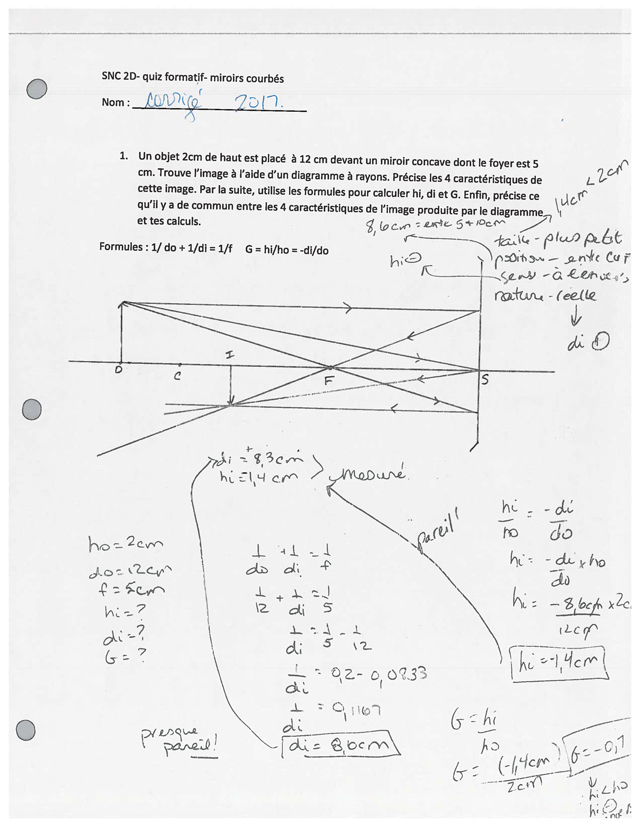 SNC 2D- quiz formatif- miroirs courbés
Nom : corrigé 2017.
1. Un objet 2cm de haut est placé à 12 cm devant un miroir concave dont le foyer est 5
cm. Trouve l'image à l'aide d'un diagramme à rayons. Précise les 4 caractéristiques de
cette image. Par la suite, utilise les formules pour calculer hi, di et G. Enfin, précise ce
qu'il y a de commun entre les 4 caractéristiques de l'image produite par le diagramme
et tes calculs.
1,4cm < 2cm
8,6cm = entre 5 + 10cm
Formules : 1/ do + 1/di = 1/f G = hi/ho = -di/do
taille - plus petit
position - entre C et F
hi ⊖
sens - à l'envers
nature - réelle
di ⊕
O C I F S
di = +8,3cm
hi = 1,4cm
mesuré.
pareil!
ho = 2cm
do = 12cm
f = 5cm
hi = ?
di = ?
G = ?
1/do + 1/di = 1/f
1/12 + 1/di = 1/5
1/di = 1/5 - 1/12
1/di = 0,2 - 0,0833
1/di = 0,1167
di = 8,6cm
presque
pareil!
hi/ho = -di/do
hi = -di x ho/do
hi = -8,6cm x 2c/12cm
hi = -1,4cm
G = hi/ho
G = (-1,4cm)/2cm
G = -0,7
hi < ho
hi ⊖